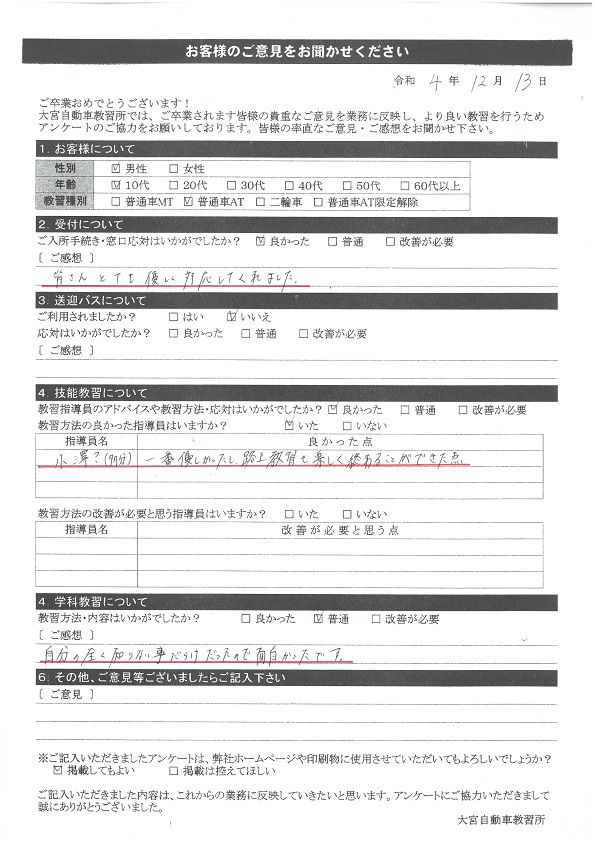 お客様のご意見をお聞かせください
令和 4 年 12 月 13 日
ご卒業おめでとうございます！
大宮自動車教習所では、ご卒業されます皆様の貴重なご意見を業務に反映し、より良い教習を行うため
アンケートのご協力をお願いしております。皆様の率直なご意見・ご感想をお聞かせ下さい。
1. お客様について
性別 ☑ 男性 □ 女性
年齢 ☑ 10代 □ 20代 □ 30代 □ 40代 □ 50代 □ 60代以上
教習種別 □ 普通車MT ☑ 普通車AT □ 二輪車 □ 普通車AT限定解除
2. 受付について
ご入所手続き・窓口応対はいかがでしたか？ ☑ 良かった □ 普通 □ 改善が必要
〔 ご感想 〕
皆さんとても優しく対応してくれました。
3. 送迎バスについて
ご利用されましたか？ □ はい ☑ いいえ
応対はいかがでしたか？ □ 良かった □ 普通 □ 改善が必要
〔 ご感想 〕
4. 技能教習について
教習指導員のアドバイスや教習方法・応対はいかがでしたか？ ☑ 良かった □ 普通 □ 改善が必要
教習方法の良かった指導員はいますか？ ☑ いた □ いない
指導員名 良かった点
小澤？(多分) 一番優しかったし、路上教習も楽しく終わることができた点。
教習方法の改善が必要と思う指導員はいますか？ □ いた □ いない
指導員名 改善が必要と思う点
4. 学科教習について
教習方法・内容はいかがでしたか？ □ 良かった ☑ 普通 □ 改善が必要
〔 ご感想 〕
自分の全く知らない事だらけだったので面白かったです。
6. その他、ご意見等ございましたらご記入下さい
〔 ご意見 〕
※ご記入いただきましたアンケートは、弊社ホームページや印刷物に使用させていただいてもよろしいでしょうか？
☑ 掲載してもよい □ 掲載は控えてほしい
ご記入いただきました内容は、これからの業務に反映していきたいと思います。アンケートにご協力いただきまして
誠にありがとうございました。
大宮自動車教習所